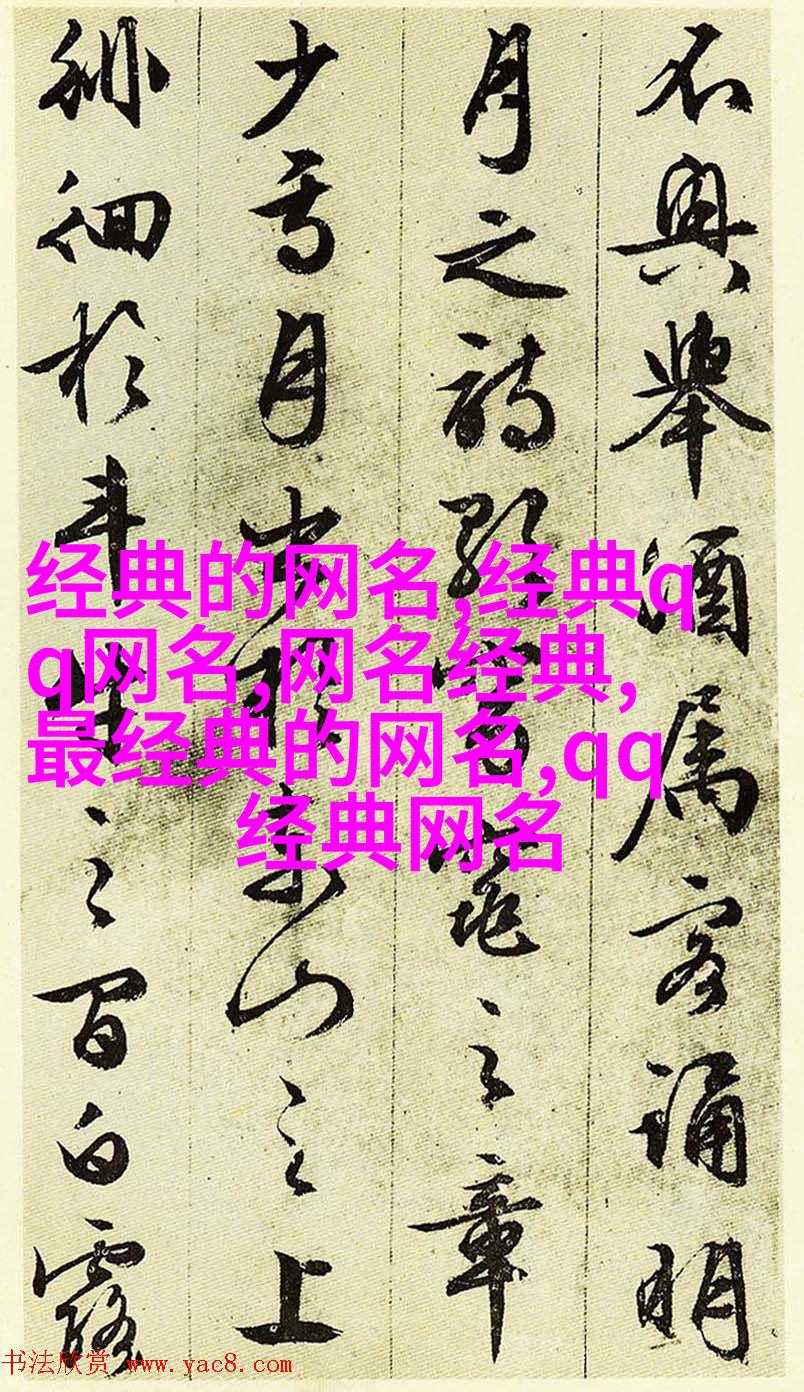 不興舉酒属客誦明
月之詩歌窈窕之章
少焉月出於東山之上
徘徊於斗牛之間白露
经典的网名,经典q
q网名,网名经典,
最经典的网名,qq
经典网名
书法欣赏 www.yac8.com